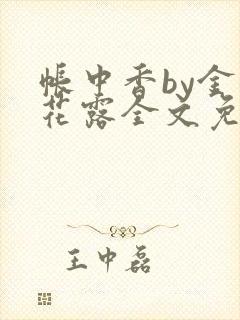 帐中香by金
花露全文免
王中磊